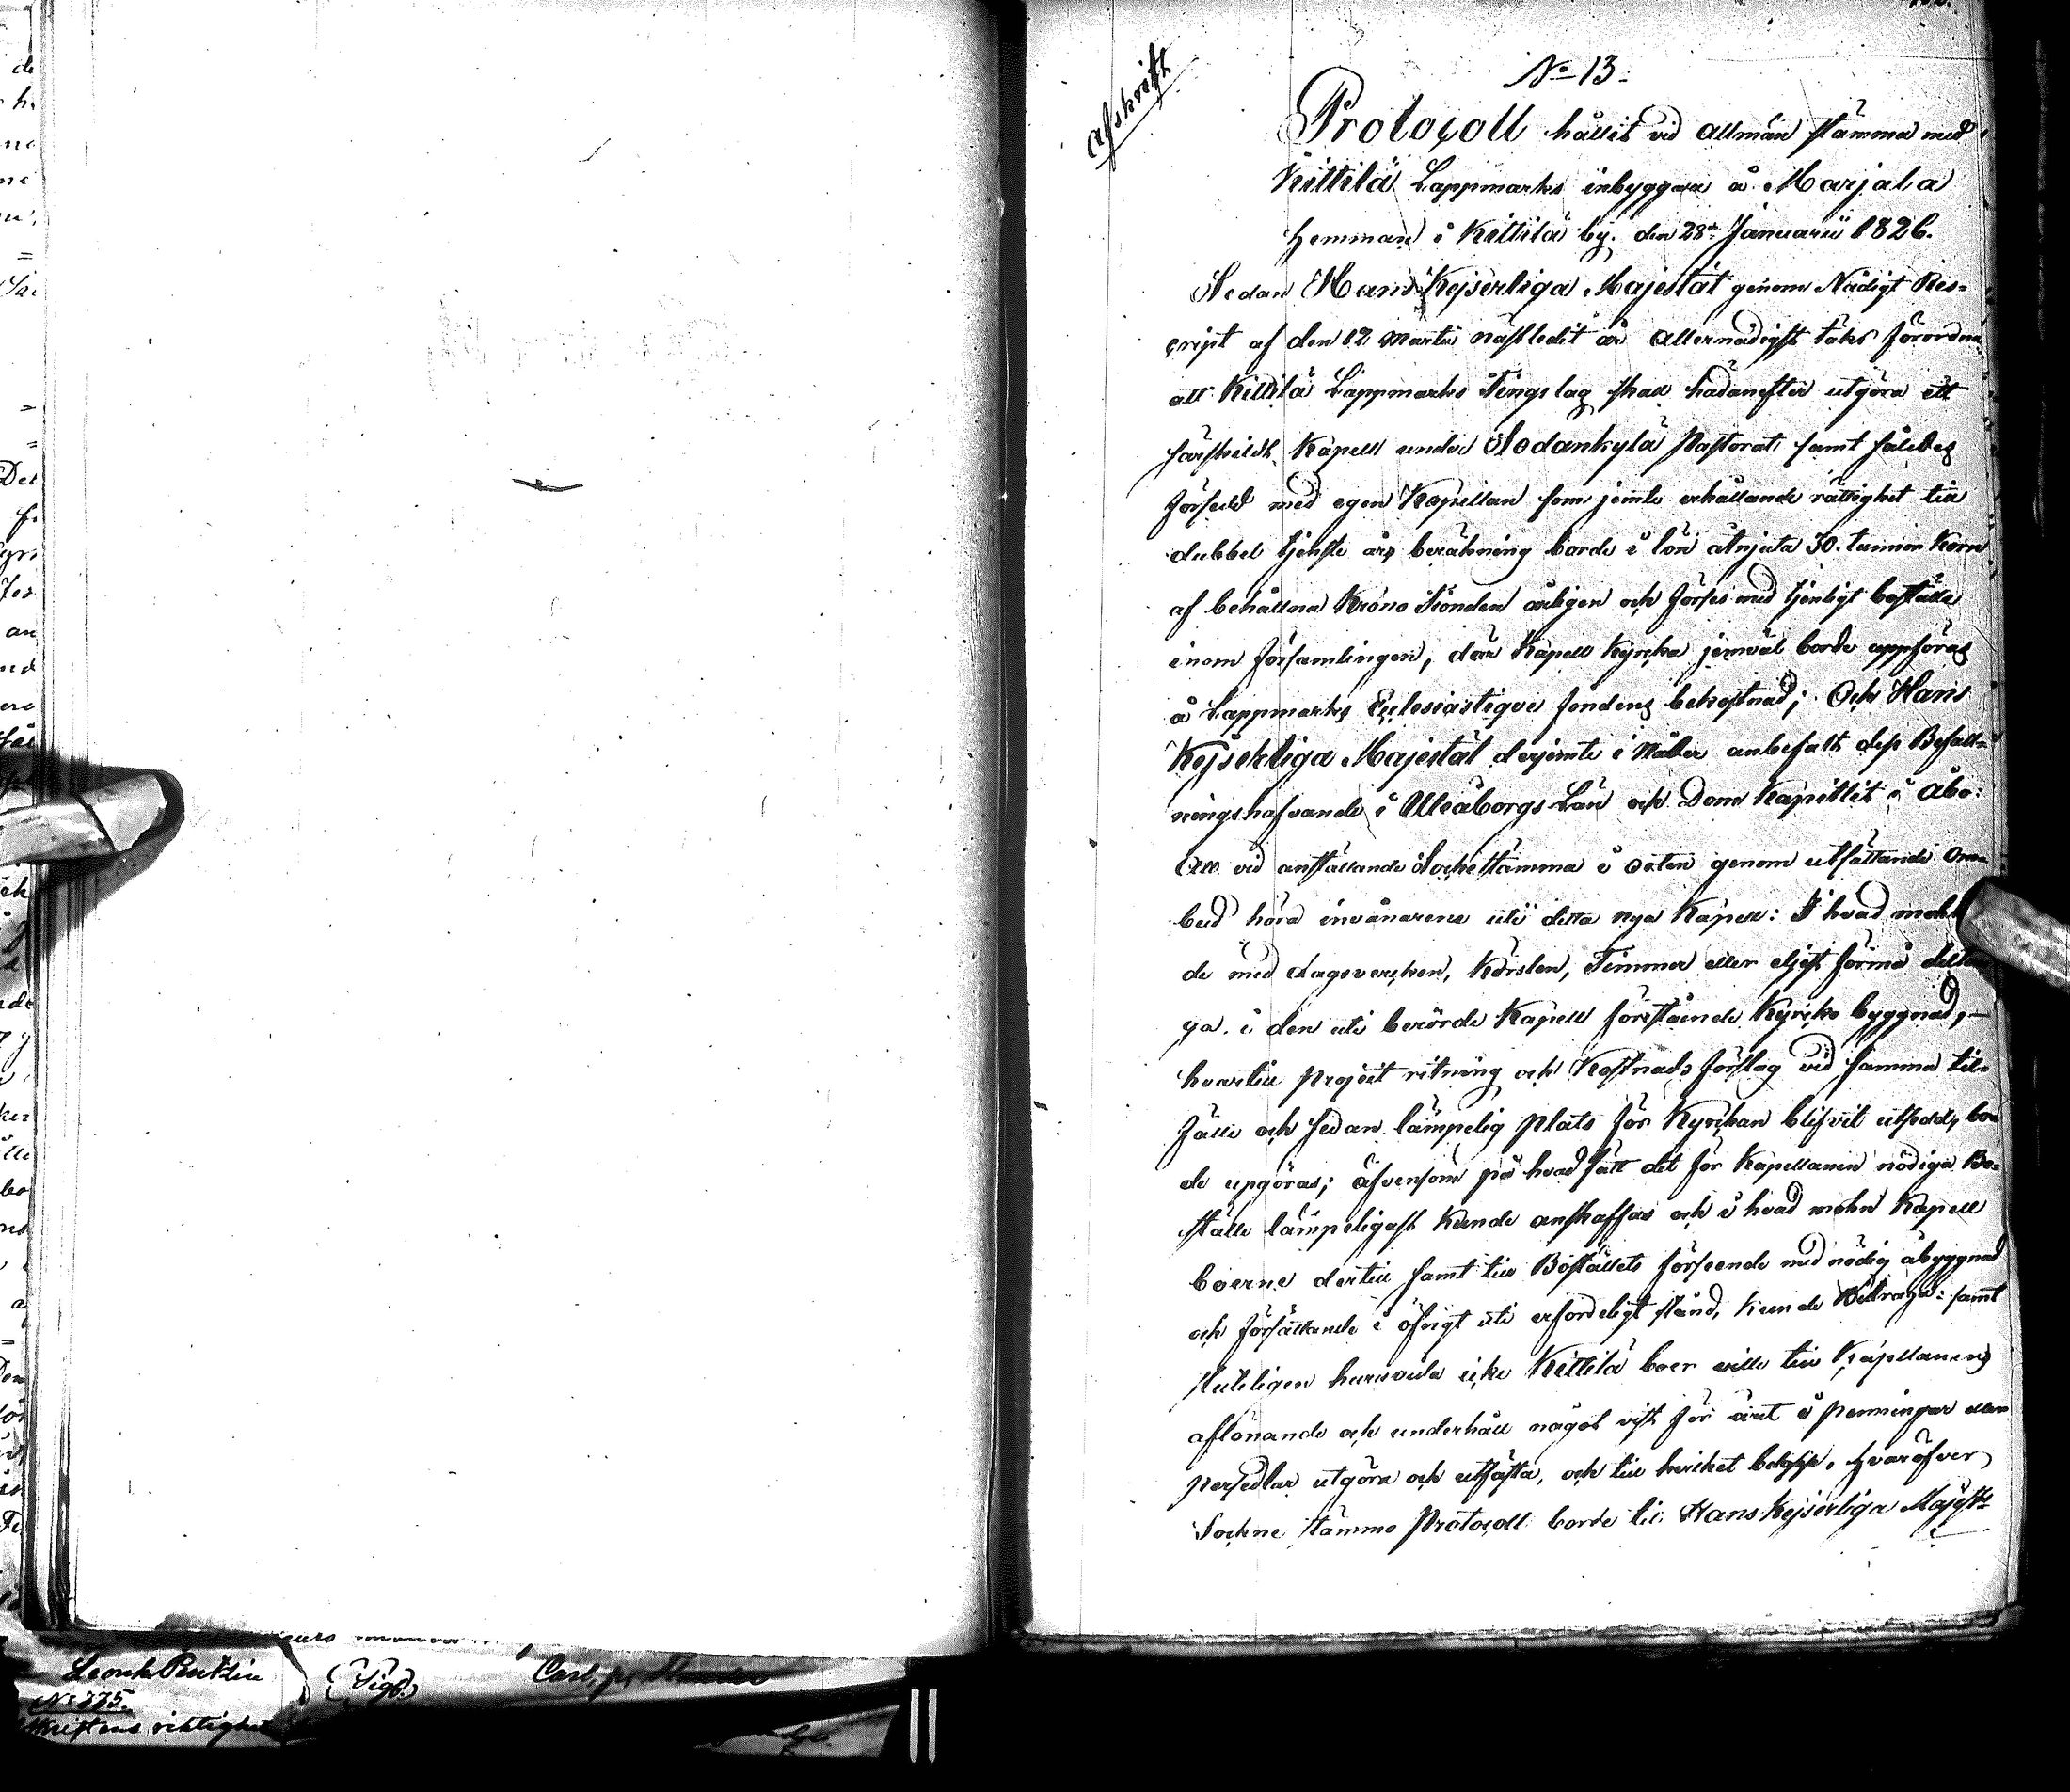 Afskrift
No 13.
Protocoll hållit vid allmän stämma med
Kittilä Lappmarks inbyggare å Marjala
Hemman i Kittilä by. den 28de Januarii 1826.
Sedan Hans Kejserliga Majestät genom Nådigt Res-
cript af den 12 Martii nästledit år allernådigst täks förordna
att Kittilä Lappmarks Tingslag skall hädanefter utgöra ett
särskildt Kapell under Sodankylä Pastorat samt således
försedd med egen Kapellan som jemte erhållande rättighet till
dubbel tjenste års beräkning borde i lön åtnjuta 30. tunnor Korn
af behållna Krono Tionden årligen och förses med tjenligt boställe
inom församlingen, där Kapell Kyrka jemväl borde uppföras
å Lappmarks Ecclesiastique fondens bekostnad; Och Hans
Kejserliga Majestät derjemte i Nåder anbefalt dess Befall-
ningshafvande i Uleåborgs Län och Dom Kapitlet i Åbo:
Att vid anställande Sockenstämma i orten genom utsättande Om-
bud höra invånarene uti detta nya Kapell: I hvad mohn
de med dagsvercken, Körslor, Timmer eller eljest förmå delta-
ga i den uti berörde Kapell förestående Kyrko byggnad,-
hvartill project ritning och Kostnads förslag vid samma til-
fälle och sedan lämpelig plats för Kyrckan blifvit utsedd, bor-
de upgöras; äfvensom på hvad sätt det för Kapellanen nödiga Bo-
ställe lämpeligast kunde anskaffas och i hvad mohn Kapell
boerne dertill samt till Boställets förseende med nödig åbyggnad
och försättande i öfrigt uti erforderligt stånd, kunde Bidraga: samt
slutligen huruvida icke Kittilä boer ville till Kapellanens
aflönande och underhåll något vist för året i penningar eller
persedlar utgöra och utfästa, och till hvilket belopp. Hvaröfver
Sockne stämmo Protocoll borde til Hans Kejserliga Majst:s
No 225.
riktighet
(Sigill)
Carl